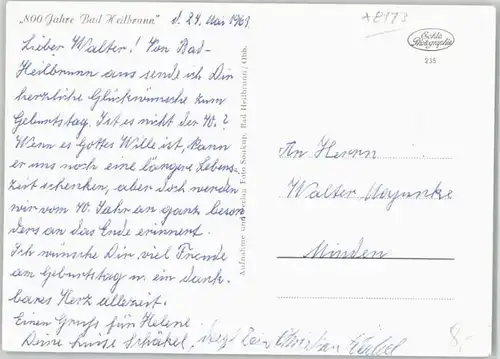 „800 Jahre Bad Heilbrunn"
d. 24. Mai 1961
Lieber Walter! Von Bad-
Heilbrunn aus sende ich Dir
herzliche Glückwünsche zum
Geburtstag. Ist es nicht der 40.?
Wenn es Gottes Wille ist, kann
er uns noch eine längere Lebens-
zeit schenken, aber doch werden
wir vom 40. Jahr an ganz beson
ders an das Ende erinnert.
Ich wünsche Dir viel Freude
am Geburtstag u. ein dank-
bares Herz allezeit.
Einen Gruß für Helene
Deine Luise Schäkel,
Christian
Aufnahme und Verlag: Foto Stöckap, Bad Heilbrunn/Obb.
A8173
Echte
Photographie
235
An Herrn
Walter
Minden
8,-